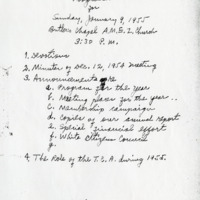 for
Sunday, January 9, 1955
Butler Chapel A.M.E.Z. Church
3:30 P.M.
1. Devotions
2. Minutes of Dec. 12, 1954 meeting
3. Announcements
a. Program for the year
b. Meeting places for the year..
c. Membership campaign
d. Copies of our annual report
e. Special financial effort
f. White Citizens Council
g.
4. The Role of the T.C.A. during 1955.